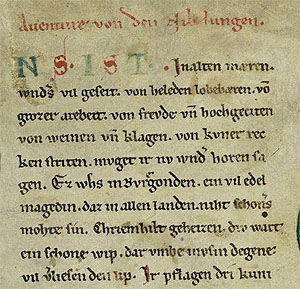 Auenture von den Nibelungen.
VNS. IST. In alten mæren.
wnds vil geseit. von heleden lobebæren. võ
grozer arebeit. von frevde vñ hochgeciten
von weinen vñ klagen. von kvner rec
ken striten. mvget ir nv wnds horen sa
gen. Ez whs in Bvrgonden. ein vil edel
magedin. daz in allen landen. niht schoñs
mohte sin. Chriemhilt geheizen. div wart
ein schone wip. dar vmbe mvsin degene
vil v̾liesen den lip. Ir pflagen dri kuni